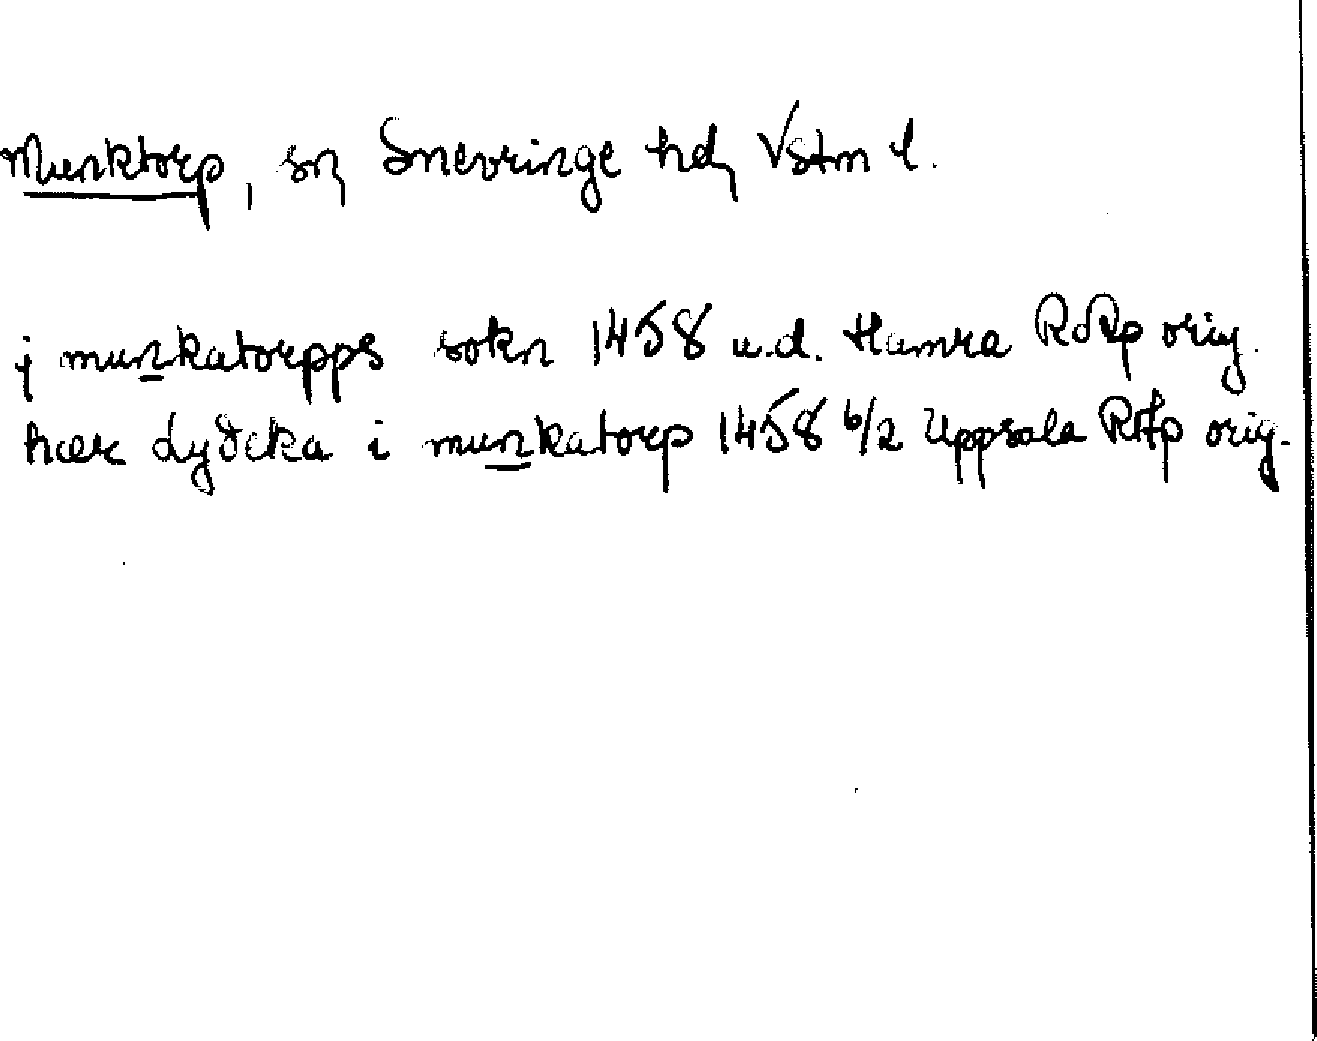 Munktorp, sn, Snevringe hd, Vstm l.
j munkatorpps sokn 1458 u.d. Hamra RAp orig.
hær Lydcka i munkatorp 1458 6/2 Uppsala RAp orig.